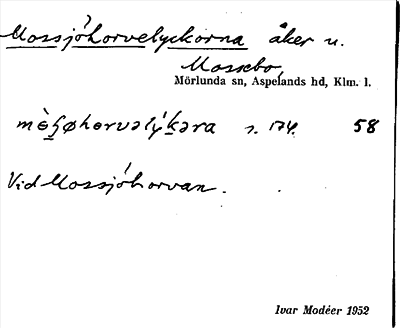 Mossjöhorvelyckorna åker u.
Mossebo,
Mörlunda sn, Aspelands hd, Klm. l.
s. 174. 58
Vid Mossjöhorvan.
Ivar Modéer 1952